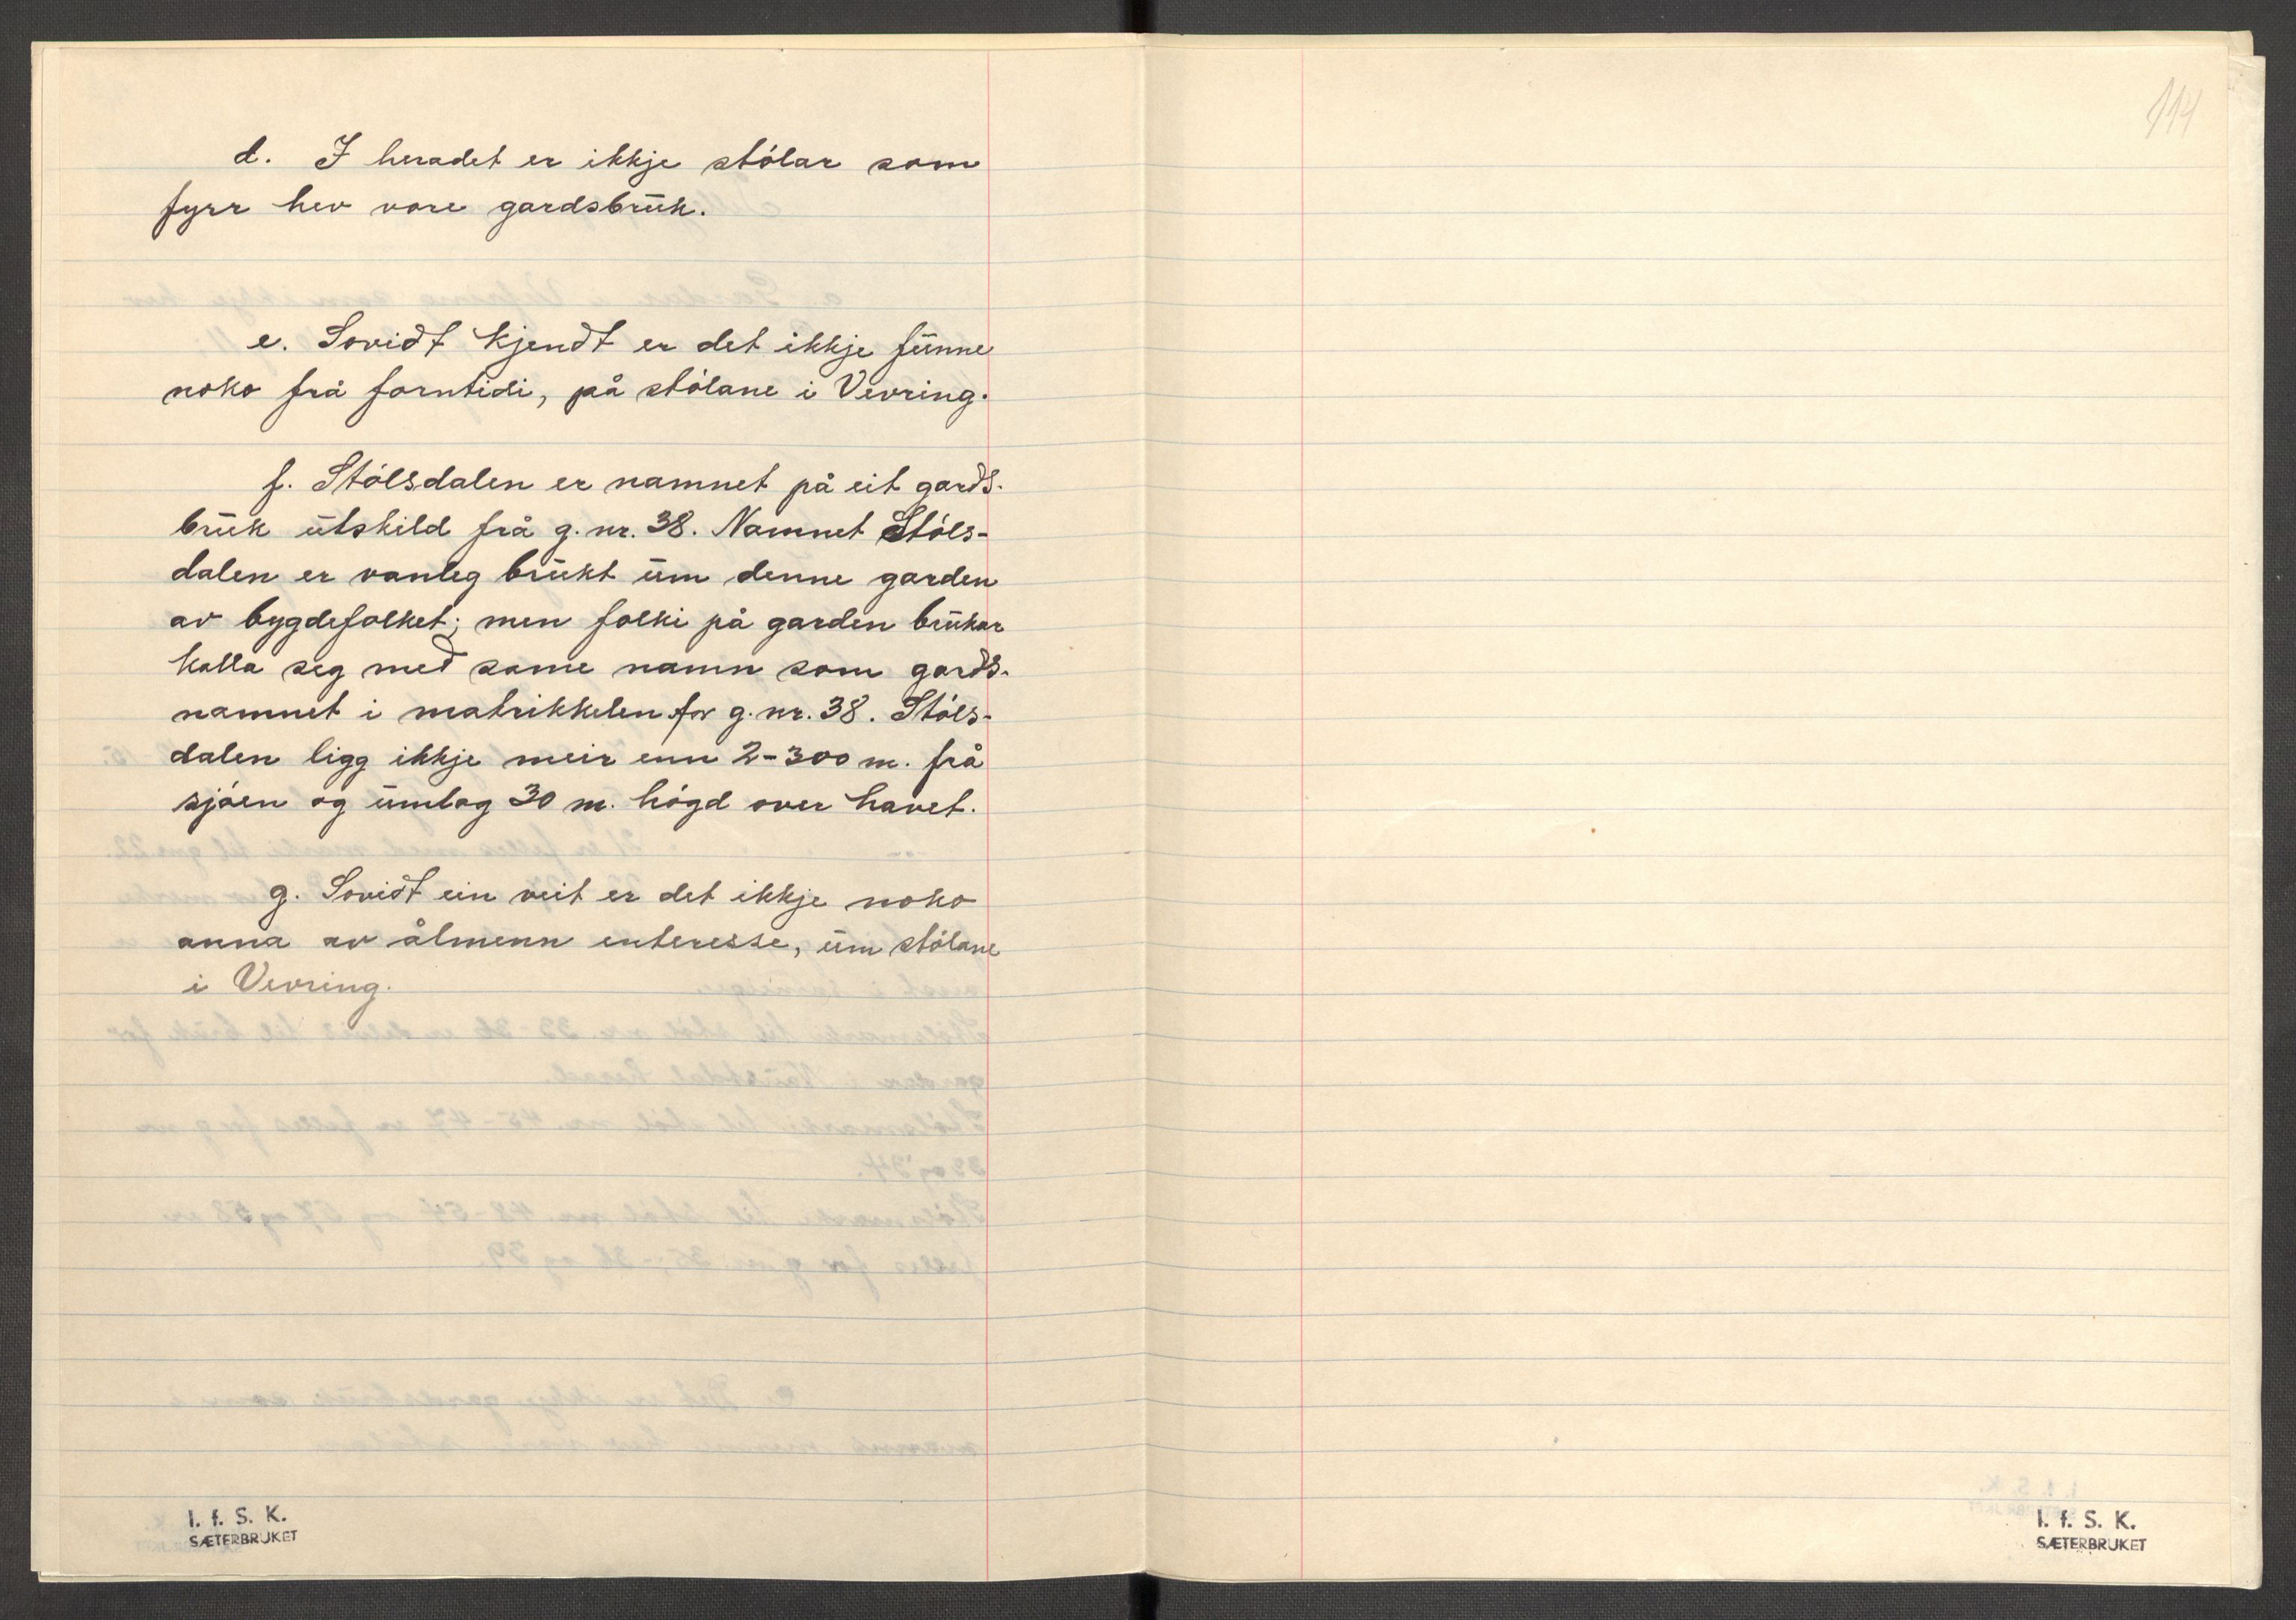 114
d. I heradet er ikkje stólar som
fyrr hev vore gardsbrŭk.
e. Sovidt kjendt er det ikkje fŭnne
noko frå forntidi, på stólane i Vevring.
f. Stólsdalen er namnet på eit gards-
brŭk ŭtskild frå g. nr. 38. Namnet Stóls-
dalen er vanleg brŭkt ŭm denne garden
av bygdefolket; men folki på garden brŭkar
kalla seg med same namn som gards-
namnet i matrikkelen for g. nr. 38. Stóls-
dalen ligg ikkje meir enn 2-300 m. frå
sjóen og ŭmlag 30 m. högd over havet.
g. Sovidt ein veit er det ikkje noko
anna av ålmenn enteresse, ŭm stólane
i Vevring.
I. f. S. K.
SÆTERBRUKET
I. f. S. K.
SÆTERBRUKET